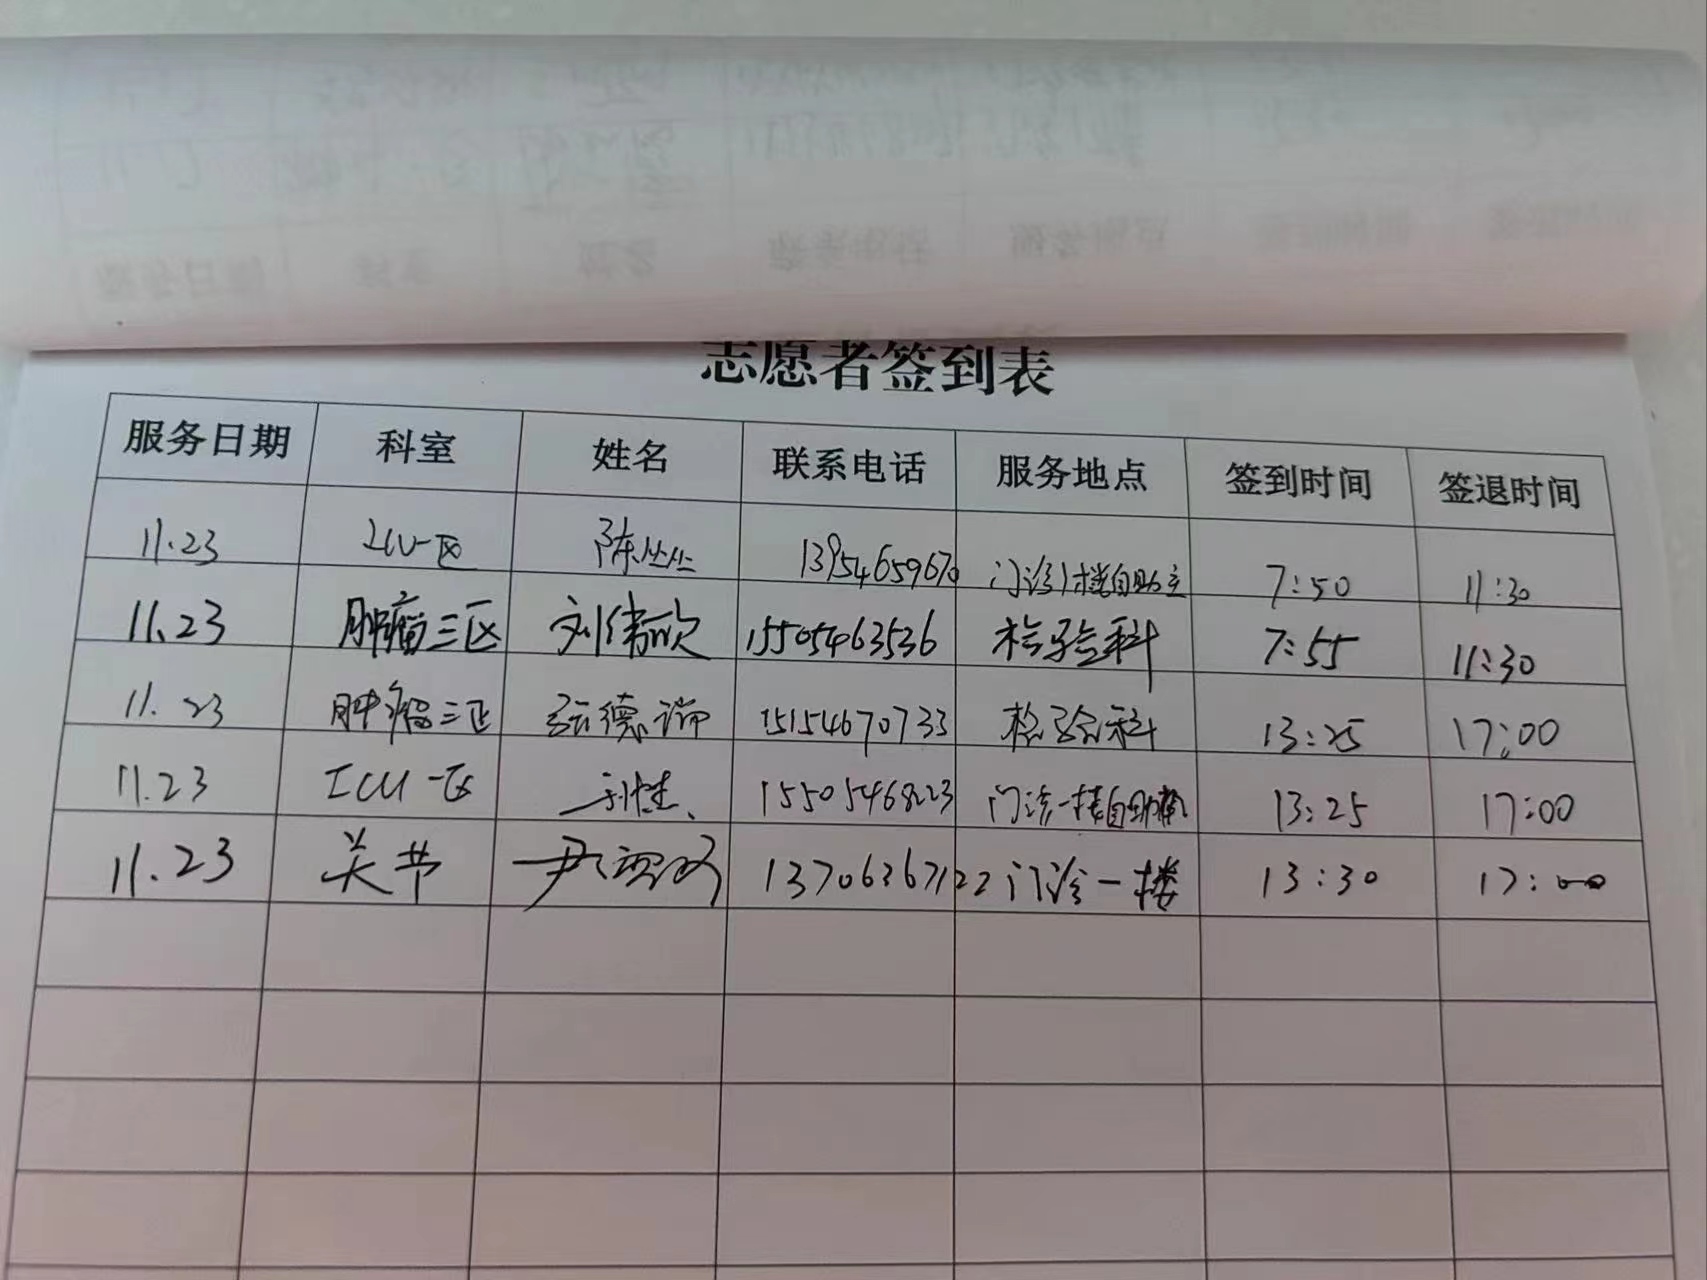 志愿者签到表
服务日期 科室 姓名 联系电话 服务地点 签到时间 签退时间
11.23 ICU一区 陈丛丛 13954659670 门诊1楼自助 7:50 11:30
11.23 肿瘤三区 刘伟欣 15505463536 检验科 7:55 11:30
11.23 肿瘤三区 德瑞 15154670733 检验科 13:25 17:00
11.23 ICU一区 15505468223 门诊一楼自助机 13:25 17:00
11.23 关节 尹 13706367122 门诊一楼 13:30 17:00